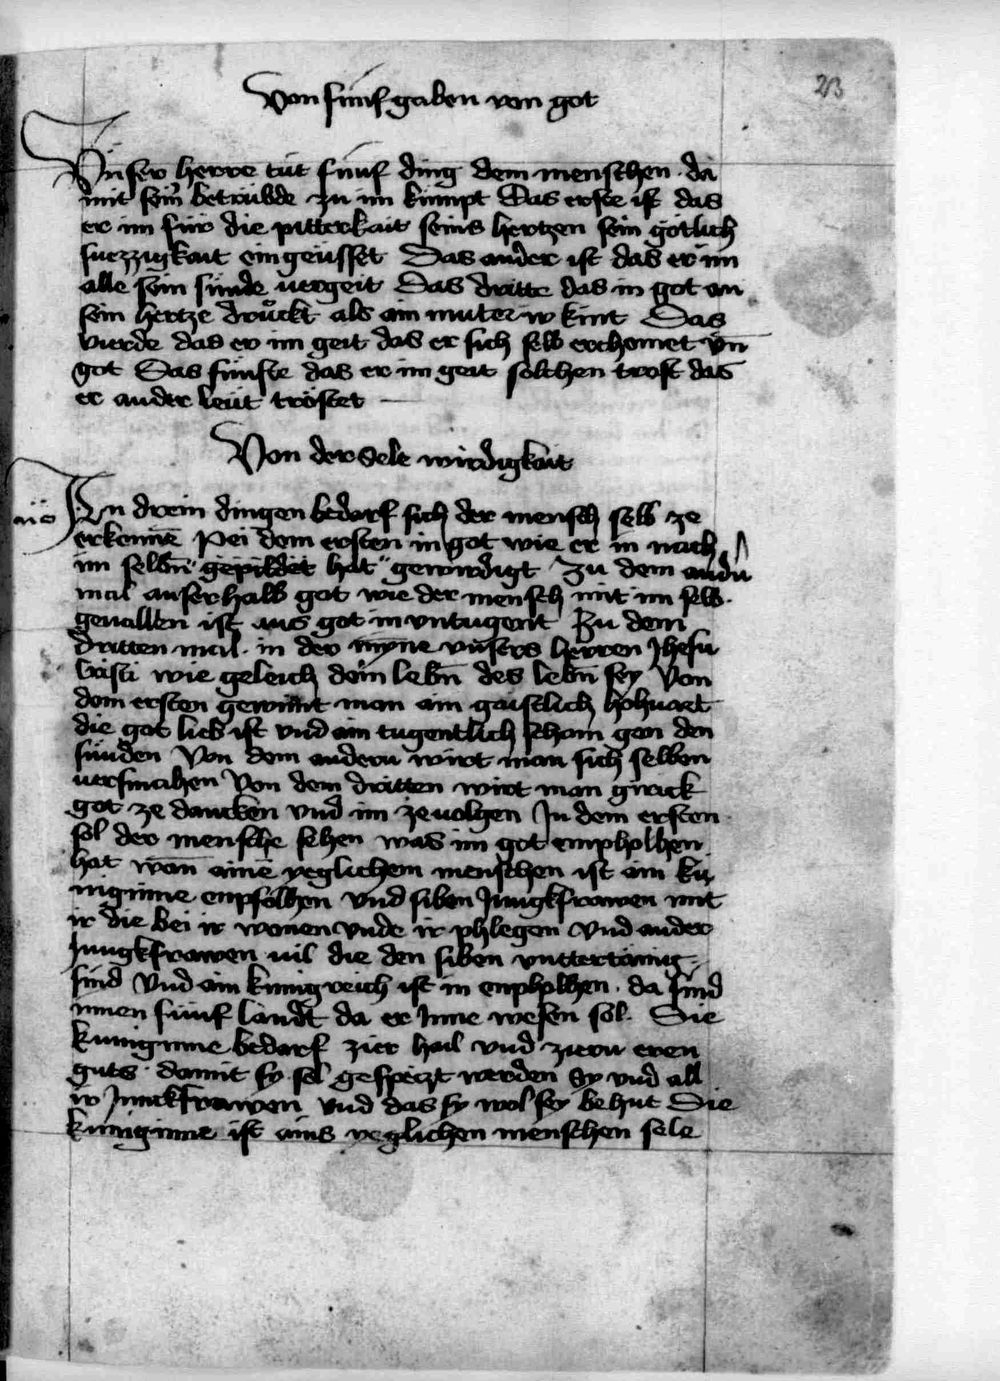 213
Von fünf gaben von got
Vnser herre tůt fünf ding dem menschen · da
mit sein betrübde zu im kumpt Das erste ist das
er im für die pitterkait seins hertzen sein götlich
suezzigkait eingeüsset Das ander ist das er im
alle sein sünde vergeit Das dritte das in got an
sein hertze druͦckt als ain muter ir kint Das
vierde das er im geit das er sich selb erchennet vn̄
got Das fünfte das er im geit solchen trost das
er ander leüt tröstet
Von der sele wirdigkait
In drein dingen bedarf sich der mensch selb ze
erkennē Pei dem ersten in got wie er in nach
im selbn̄ gepildet hat gewirdigt Zu dem andn̄
mal auserhalb got wie der mensch mit im selb
geuallen ist aus got in vntugent Zu dem
dritten mal · in der mÿnne vnsers herren Jhesu
Cristi wie geleich dein lebn̄ des lebn̄ sey Von
dem ersten gewinnt man ain gaistlich hohuart
die got lieb ist vnd ain tugentlich scham gen den
sünden Von dem andern wirt man sich selben
uersmahen Von dem dritten wirt man girick
got ze dancken vnd im ze uolgen In dem ersten
sol der mensche sehen was im got empholhen
hat wan̄ aine yeglichem menschen ist ain kü
niginne enpfolhen vnd siben Jungkfrawen mit
ir die bei ir wonen vnde ir phlegen vnd ander
Jungkfrawen uil die den siben vntertänig
sind Vnd ain künigreich ist in enpholhen · da sind
innen fünf landt da er Inne wesen sol · Die
kuniginne bedarf zier hail vnd zirn eren
guts · damit sy sol gespeizt werden Sy vnd all
ir Junckfrawen vnd das sy wol sey behut Die
kuniginne ist ains yeglichen menschen sele